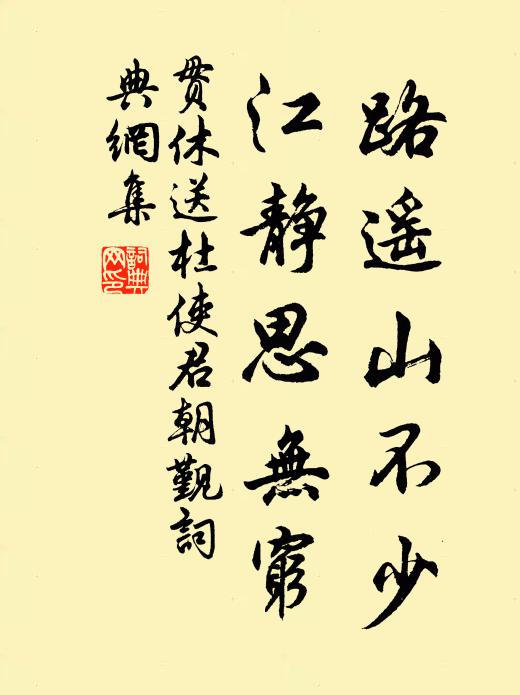 路遥山不少
江静思無窮
贯休送杜使君朝覲詞
典網集
詞典網印